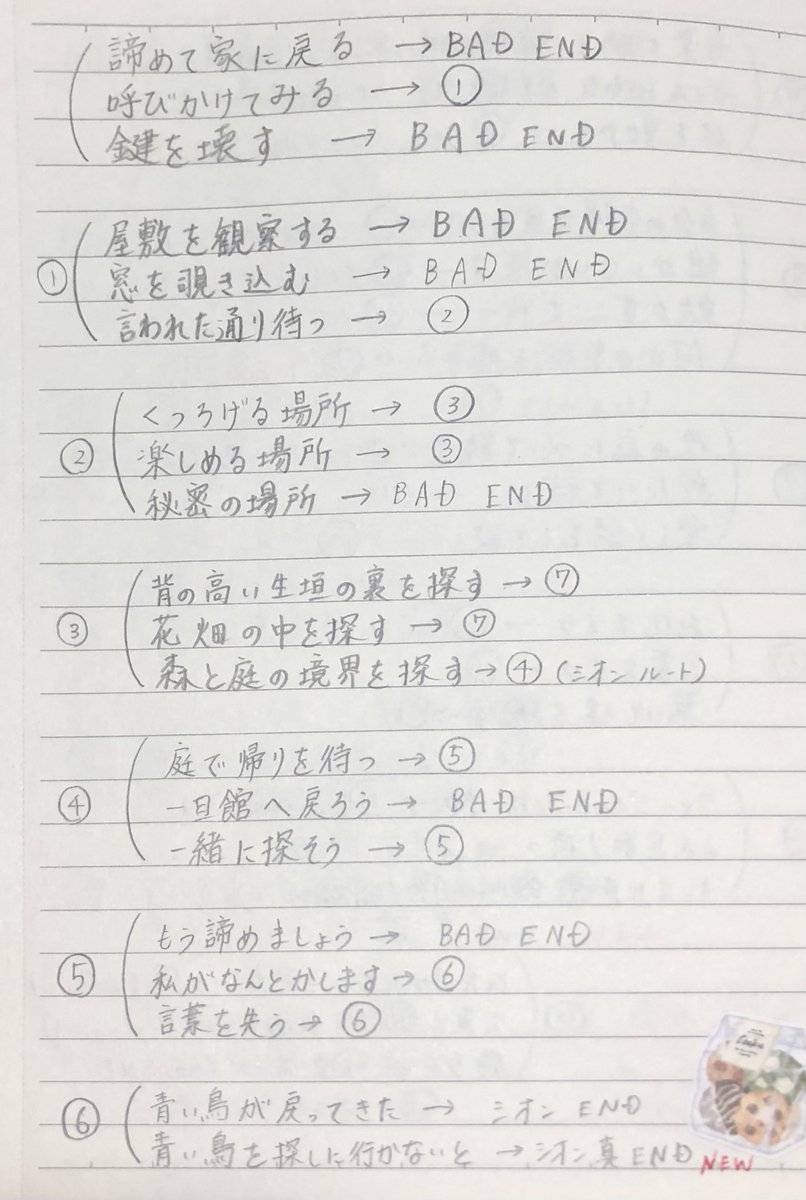 諦めて家に戻る → BAD END
呼びかけてみる → ①
鍵を壊す → BAD END
① 屋敷を観察する → BAD END
窓を覗き込む → BAD END
言われた通り待つ → ②
② くつろげる場所 → ③
楽しめる場所 → ③
秘密の場所 → BAD END
③ 背の高い生垣の裏を探す → ⑦
花畑の中を探す → ⑦
森と庭の境界を探す → ④ (シオンルート)
④ 庭で帰りを待つ → ⑤
一旦館へ戻ろう → BAD END
一緒に探そう → ⑤
⑤ もう諦めましょう → BAD END
私がなんとかします → ⑥
言葉を失う → ⑥
⑥ 青い鳥が戻ってきた → シオン END
青い鳥を探しに行かないと → シオン真END NEW